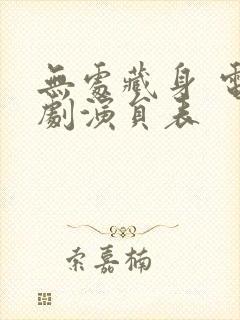 無處藏身 電
劇演員表
索嘉楠